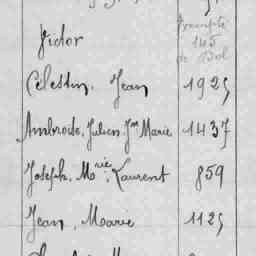 Victor
145
de Dol
Celestin, Jean 1925
Ambroise, Julien, Jn Marie 1437
Joseph, Mrie, Laurent 859
Jean, Marie 1125